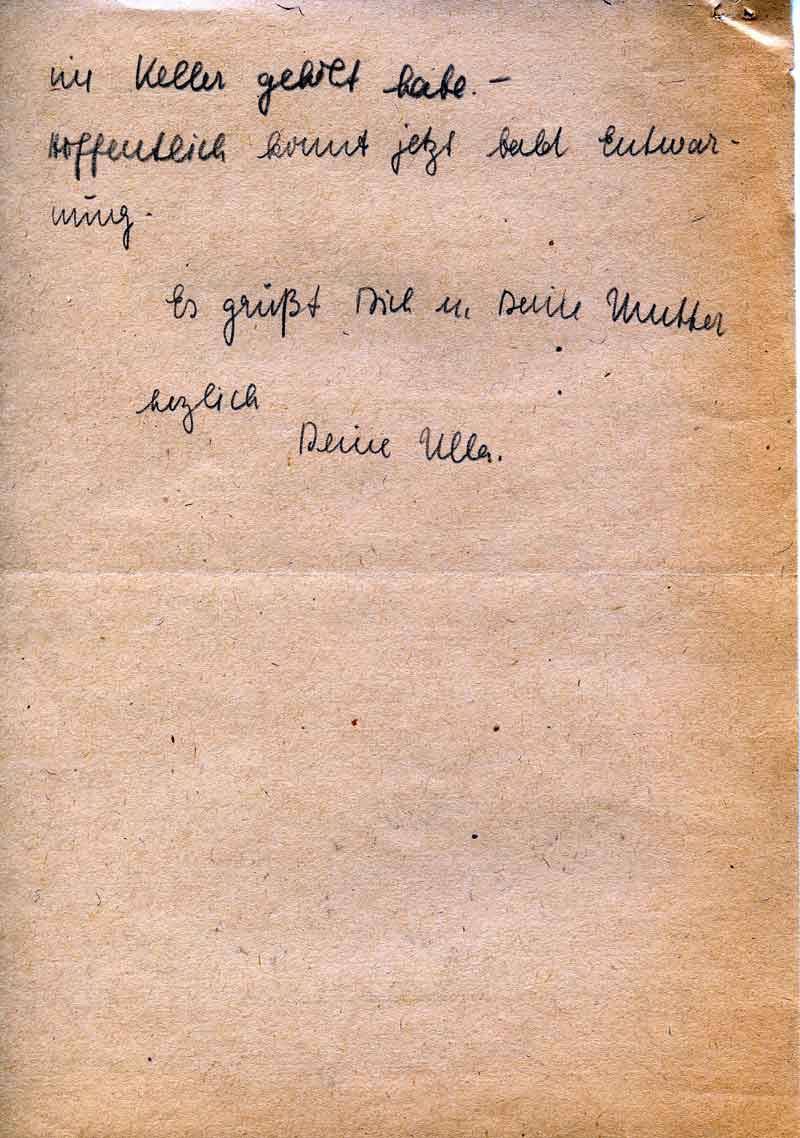 im Keller geholt habe. –
Hoffentlich kommt jetzt bald Entwar-
nung.
Es grüßt Dich u. Deine Mutter
herzlich
Deine Ulla.